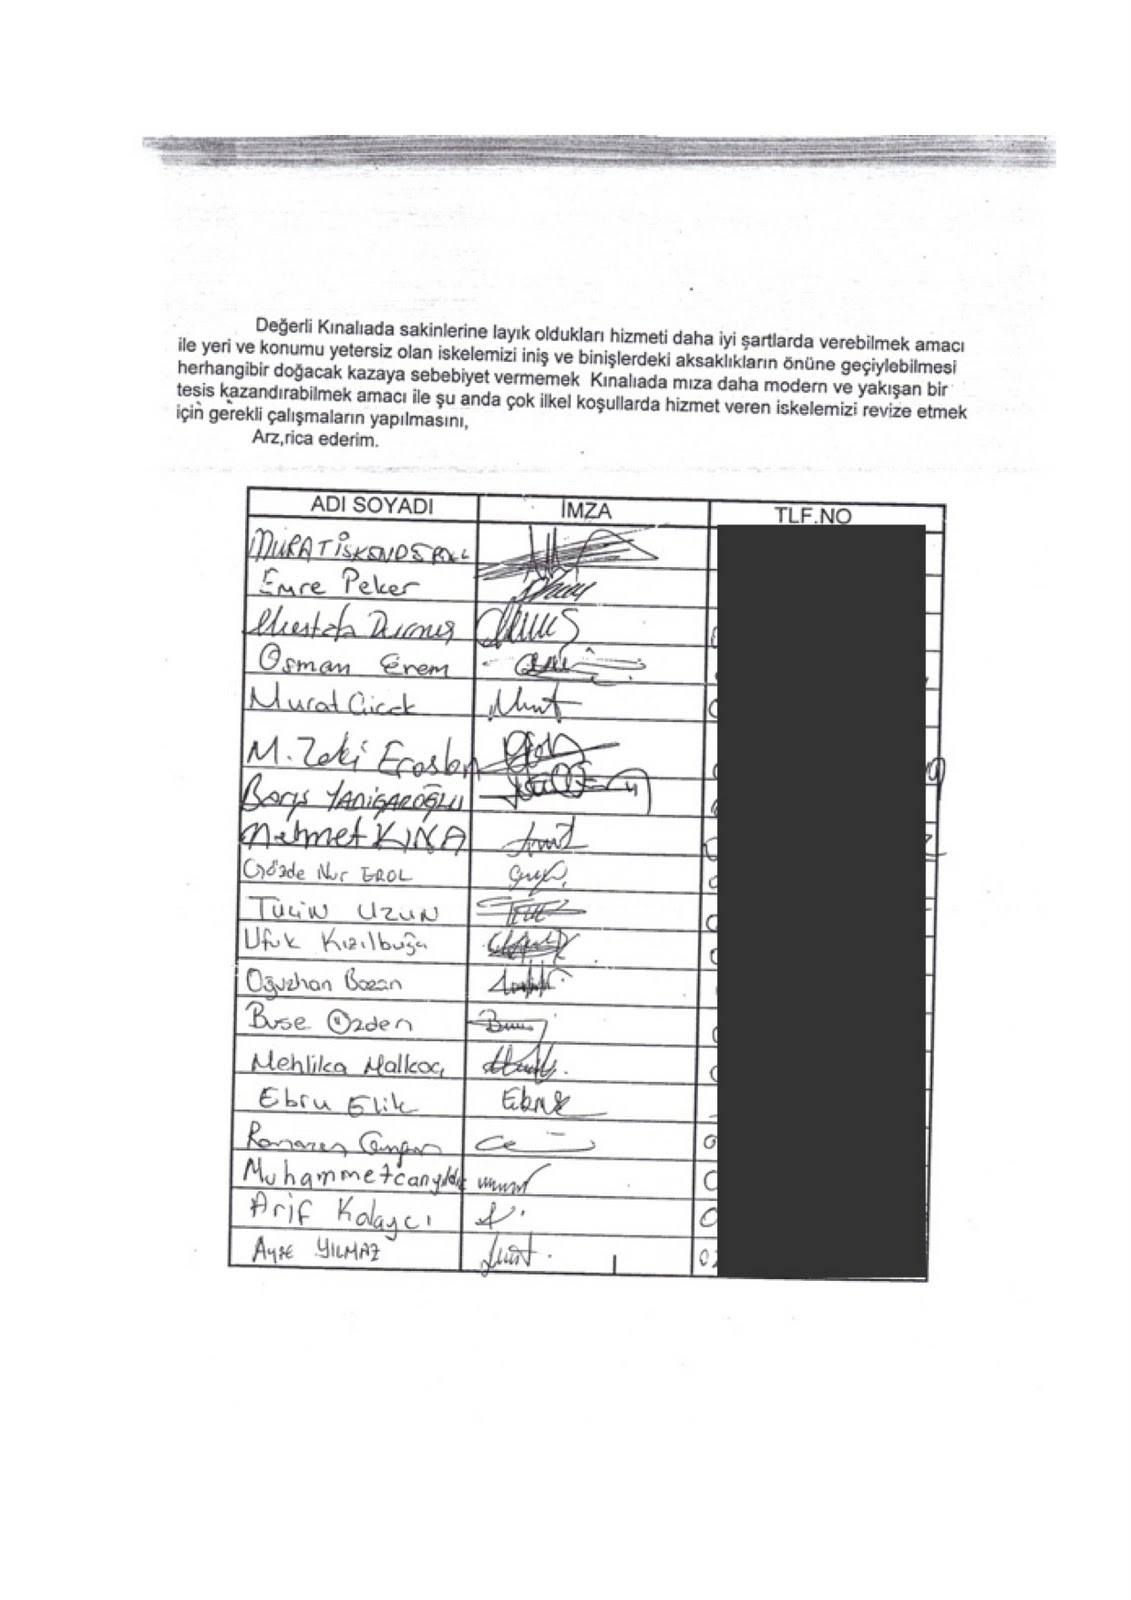 Değerli Kınalıada sakinlerine layık oldukları hizmeti daha iyi şartlarda verebilmek amacı
ile yeri ve konumu yetersiz olan iskelemizi iniş ve binişlerdeki aksaklıkların önüne geçiylebilmesi
herhangibir doğacak kazaya sebebiyet vermemek Kınalıada mıza daha modern ve yakışan bir
tesis kazandırabilmek amacı ile şu anda çok ilkel koşullarda hizmet veren iskelemizi revize etmek
için gerekli çalışmaların yapılmasını,
Arz,rica ederim.
ADI SOYADI İMZA TLF.NO
MURAT
Emre Peker
Mustafa Durmuş
Osman Erem
Murat Çiçek
M. Zeki
Barış
Mehmet KINA
Gözde Nur EROL
TÜLİN UZUN
Ufuk Kızılbuğa
Oğuzhan Bozan
Buse Özden
Mehlika Malkoç
Ebru Elik Ebru
Ramazan
Muhammetcanyıldız
Arif Kalaycı
Ayşe YILMAZ